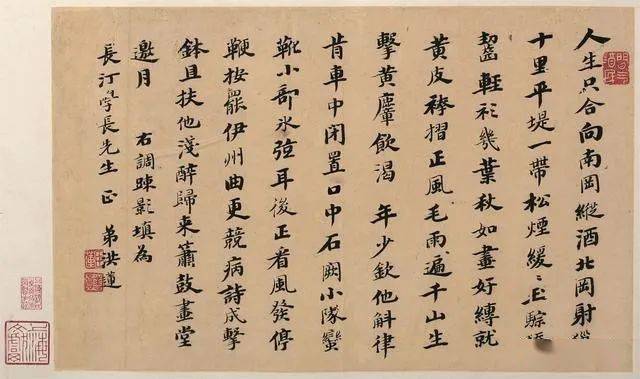 人生只合向南岡縱酒北岡射
十里平堤一帶松煙緩〻
輕衫幾葉秋如畫好縳就
黃皮袴褶正風毛雨遍千山生
擊黃麞飲渴 年少欽他斛律
肯車中閉置口中石闕小隊蠻
靴小部氷弦耳後正看風發停
鞭按罷伊州曲更競病詩成擊
鉢且扶他淺醉歸来簫鼓畫堂
邀月 右調疎影填為
長汀學長先生 正 弟洪